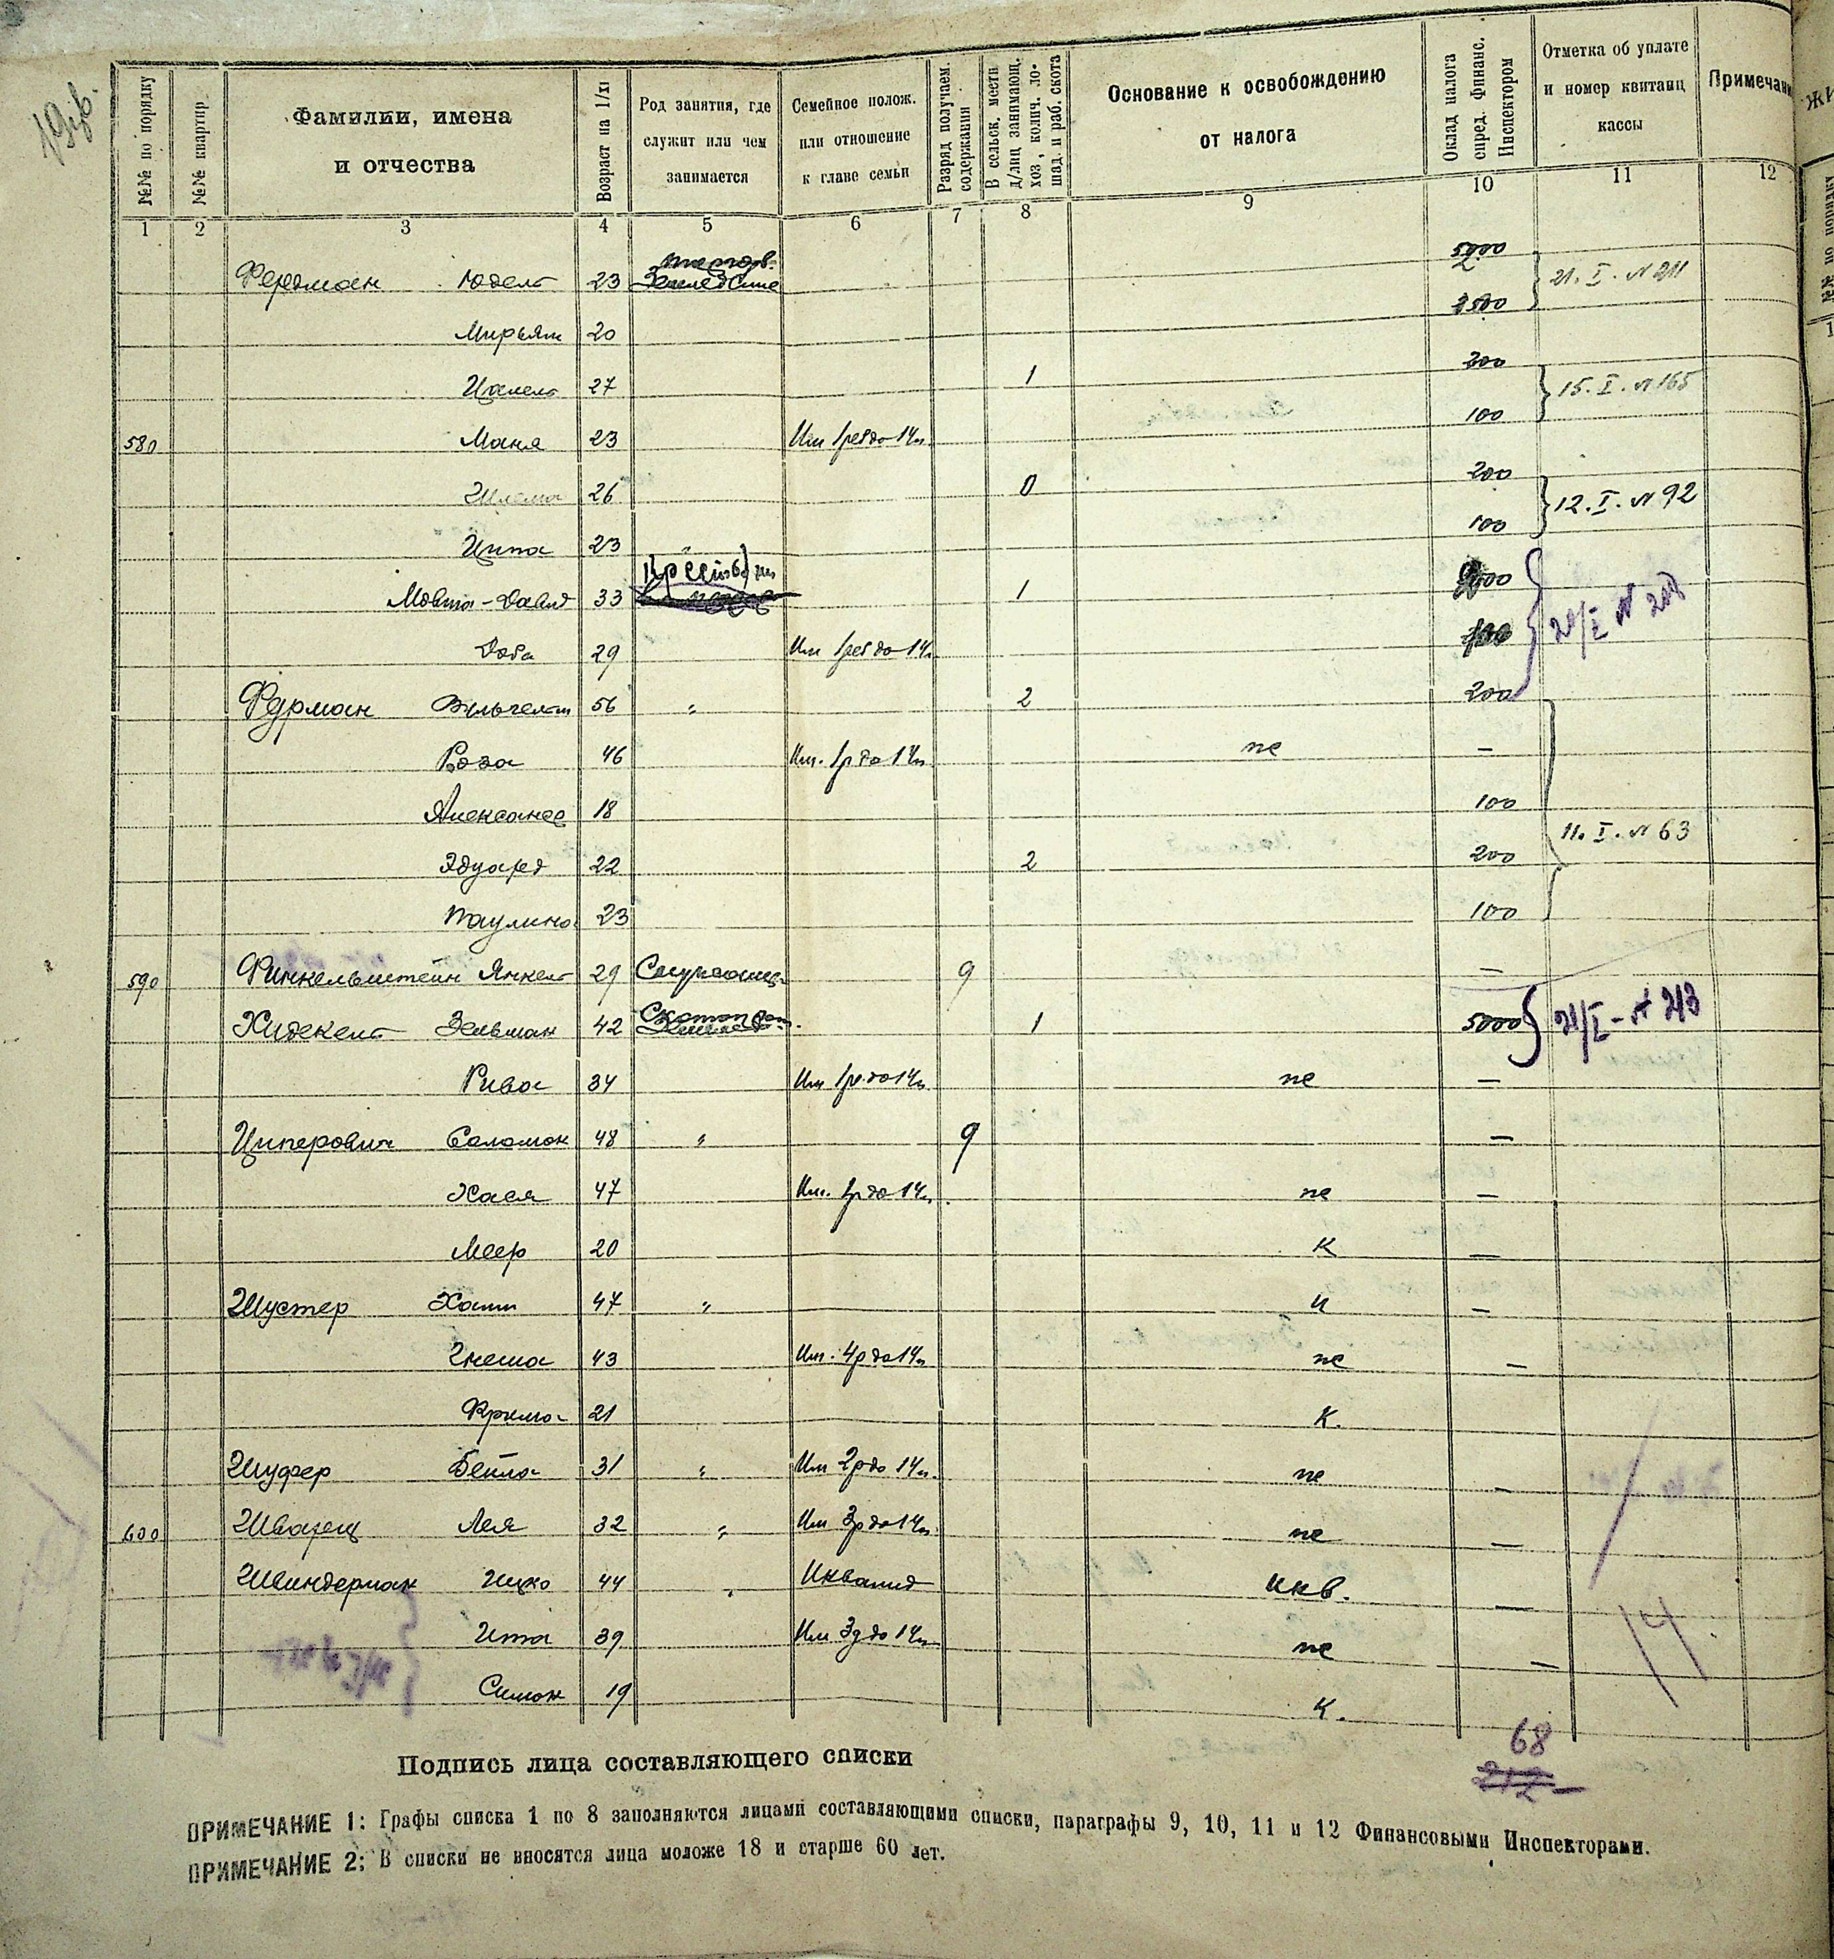 №№ по порядку
№№ квартир
Фамилии, имена
и отчества
Возраст на 1/XI
Род занятия, где
служит или чем
занимается
Семейное полож.
или отношение
к главе семьи
Разряд получаем.
содержания
В сельск. местн
д/лиц занимающ.
хоз, колич. ло-
шад. и раб. скота
Основание к освобождению
от налога
Оклад налога
опред. финанс.
Инспектором
Отметка об уплате
и номер квитанц
кассы
Примечани
1 2 3 4 5 6 7 8 9 10 11 12
Юдель 23 5000 21. I. N 211
2500
Мирьям 20
27 1 200 15. I. N 165
580 Маня 23 Им 1 реб до 14 л. 100
26 0 200 12. I. N 92
Ципа 23 " 100
Давид 33 1
29 Им 1 реб до 14 л.
Фурман Вильгельм 56 " 2 200
Роза 46 Им. 1 р до 14 л пе —
Александр 18 100
Эдуард 22 2 200 11. I. N 63
Паулина 23 100
590 Финкельштейн Янкель 29 9 —
Хидекель Зельман 42 1 5000 21/I - N 213
Рива 34 Им 1 р. до 14 л пе —
Циперович Соломон 48 " 9 —
Хася 47 Им. 1 р до 14 л. пе —
Меер 20 К —
Шустер Хаим 47 " и —
Гнеша 43 Им. 4 р до 14 л пе —
Фрима 21 К.
Шуфер Бейла 31 " Им 2 р до 14 л. пе —
600 Шварц Лея 32 " Им 3 р до 14 л. пе —
Шиндерман Ицко 44 " Инвалид инв. —
Ита 39 Им 3 р до 14 л пе —
Симон 19 К.
14
68
212
Подпись лица составляющего списки
ПРИМЕЧАНИЕ 1: Графы списка 1 по 8 заполняются лицами составляющими списки, параграфы 9, 10, 11 и 12 Финансовыми Инспекторами.
ПРИМЕЧАНИЕ 2: В списки не вносятся лица моложе 18 и старше 60 лет.